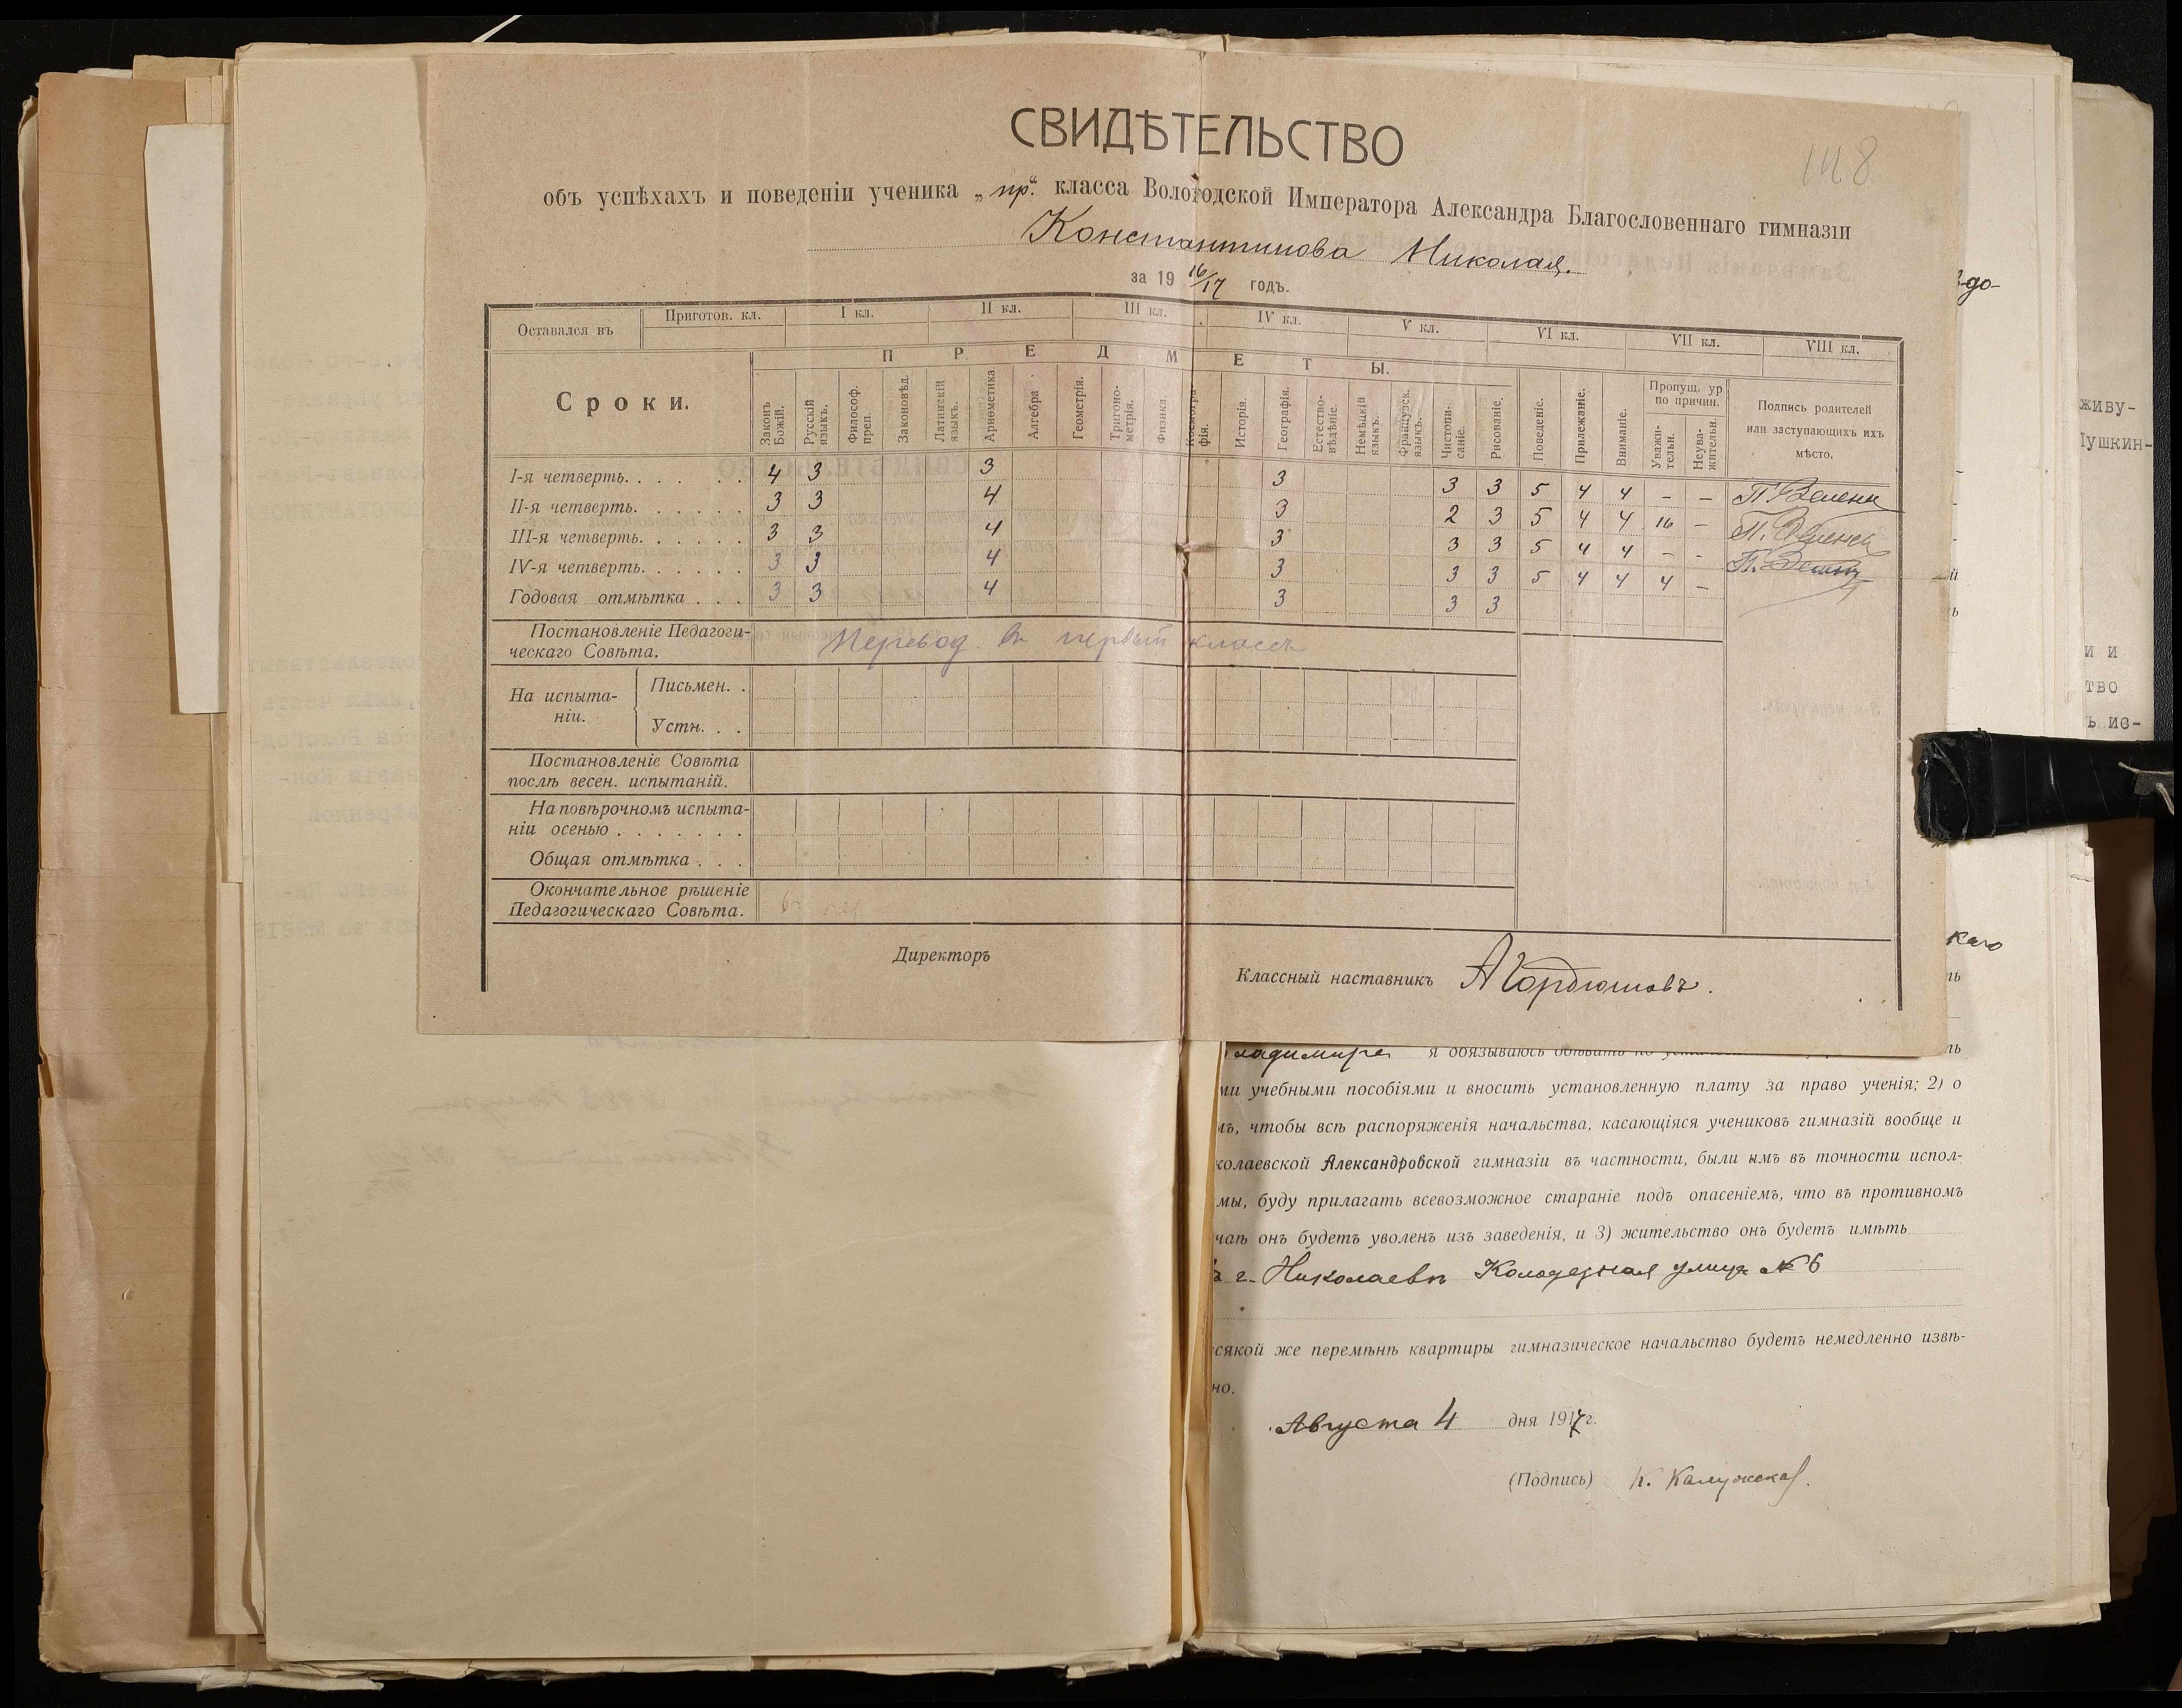 148
СВИДѢТЕЛЬСТВО
объ успѣхахъ и поведеніи ученика „пр.“ класса Вологодской Императора Александра Благословеннаго гимназіи
Константинова Николая.
за 19 16/17 годъ.
Оставался въ Приготов. кл. I кл. II кл. III кл. IV кл. V кл. VI кл. VII кл. VIII кл.
Сроки. ПРЕДМЕТЫ.
Законъ Божій. Русскій языкъ. Философ. преп. Законовѣд. Латинскій языкъ. Ариѳметика Алгебра Геометрія. Тригоно-метрія. Физика. Космогра-фія. Исторія. Географія. Естество-вѣдѣніе. Нѣмецкій языкъ. Французск. языкъ. Чистопи-саніе. Рисованіе. Поведеніе. Прилежаніе. Вниманіе. Пропущ. ур. по причин. Уважи-тельн. Неува-жительн. Подпись родителей или заступающихъ ихъ мѣсто.
I-я четверть. 4 3 3 3 3 3 5 4 4 – –
II-я четверть. 3 3 4 3 2 3 5 4 4 16 –
III-я четверть. 3 3 4 3 3 3 5 4 4 – -
IV-я четверть. 3 3 4 3 3 3 5 4 4 4 –
Годовая отмѣтка . . . 3 3 4 3 3 3
Постановленіе Педагоги-
ческаго Совѣта. Перевод. въ первый классъ
На испыта-
ніи.
Письмен. .
Устн. . .
Постановленіе Совѣта
послѣ весен. испытаній.
На повѣрочномъ испыта-
ніи осенью . . . . . . .
Общая отмѣтка . . .
Окончательное рѣшеніе
Педагогическаго Совѣта.
Директоръ
Классный наставникъ
-до-
живу-
Пушкин-
и и
тво
ь из-
каго
ладимира я обязываюсь
ми учебными пособіями и вносить установленную плату за право ученія; 2) о
мъ, чтобы всѣ распоряженія начальства, касающіяся учениковъ гимназій вообще и
колаевской Александровской гимназіи въ частности, были имъ въ точности испол-
мы, буду прилагать всевозможное стараніе подъ опасеніемъ, что въ противномъ
чаѣ онъ будетъ уволенъ изъ заведенія, и 3) жительство онъ будетъ имѣть
г. Николаевѣ Колодезная улица № 6
сякой же перемѣнѣ квартиры гимназическое начальство будетъ немедленно извѣ-
но.
Августа 4 дня 1917 г.
(Подпись) К. Калужская.